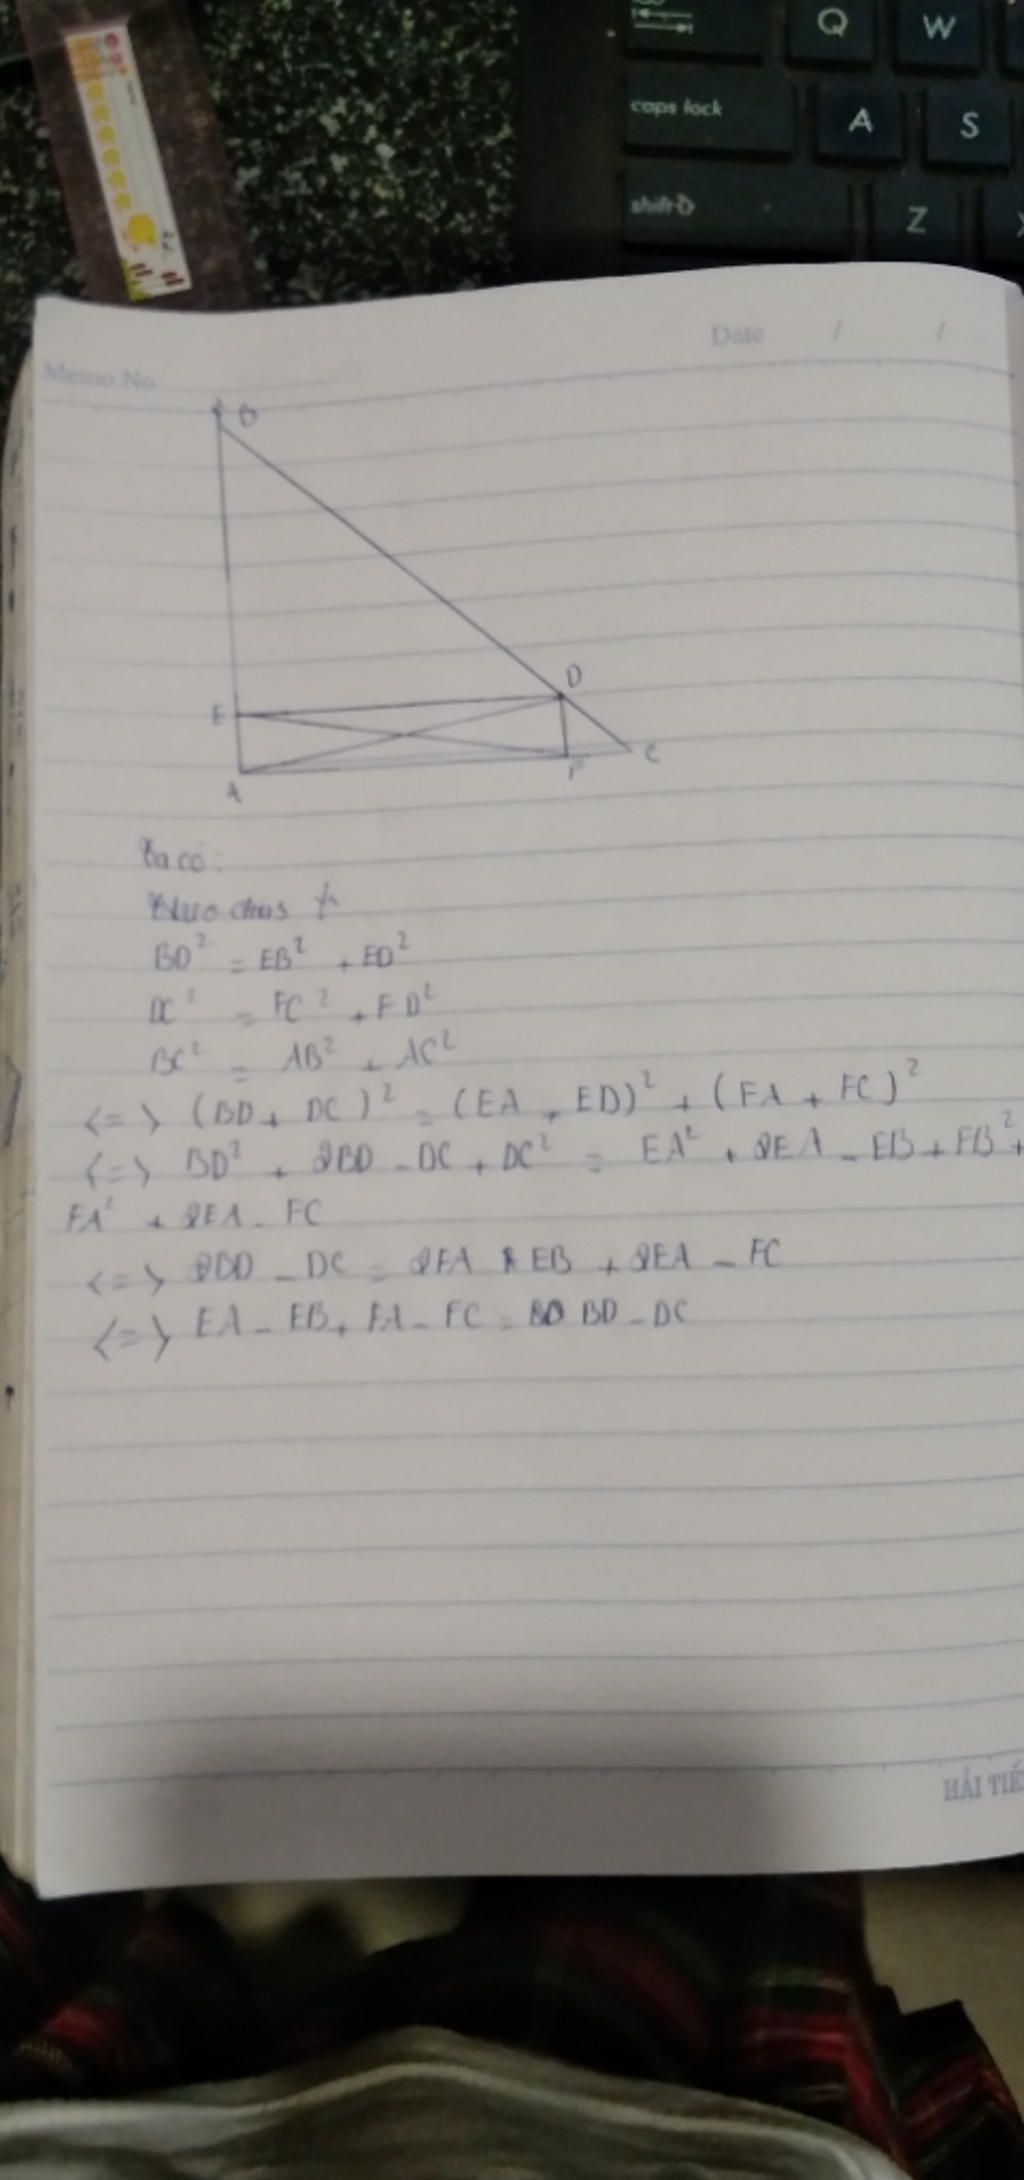 Q W
caps lock A S
shift Z
Memo No Date / /
B
D
E
C
F
A
Ta có:
BD² = EB² + ED²
DC² = FC² + FD²
BC² = AB² + AC²
<=> (BD + DC)² = (EA + ED)² + (FA + FC)²
<=> BD² + 2BD - DC + DC² = EA² + 2EA - EB + EB² +
FA² + 2FA - FC
<=> 2BD - DC = 2EA EB + 2FA - FC
<=> EA - EB + FA - FC = BD - DC
HẢI TIẾ